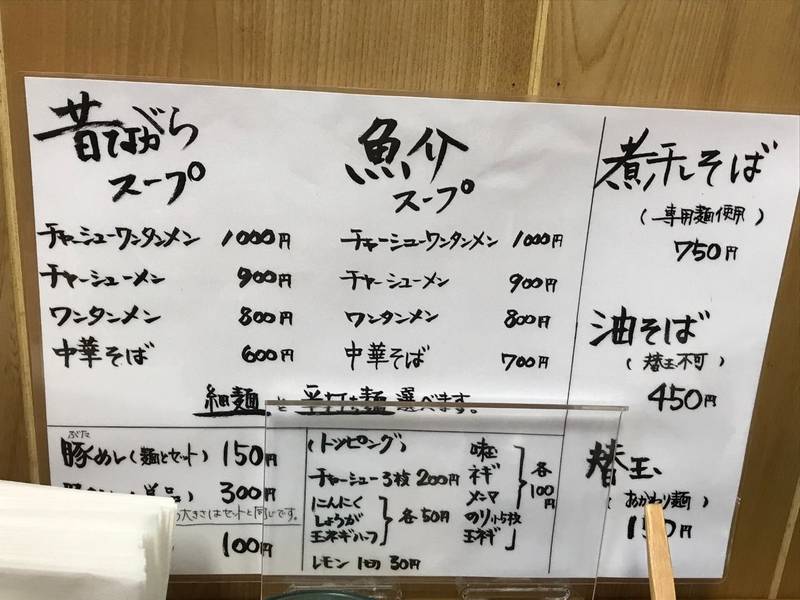 昔ながら
スープ
チャーシューワンタンメン 1000円
チャーシューメン 900円
ワンタンメン 800円
中華そば 600円
魚介
スープ
チャーシューワンタンメン 1000円
チャーシューメン 900円
ワンタンメン 800円
中華そば 700円
細麺と平打ち麺選べます。
煮干しそば
(専用麺使用)
750円
油そば
(替玉不可)
450円
替玉
(おかわり麺)
150円
ぶた
豚めし(麺とセット) 150円
300円
大きさはセットと同じです。
100円
(トッピング)
チャーシュー3枚 200円
にんにく
しょうが
玉ネギハーフ
各50円
レモン1回30円
味玉
ネギ
メンマ
のり小5枚
玉ネギ
各100円